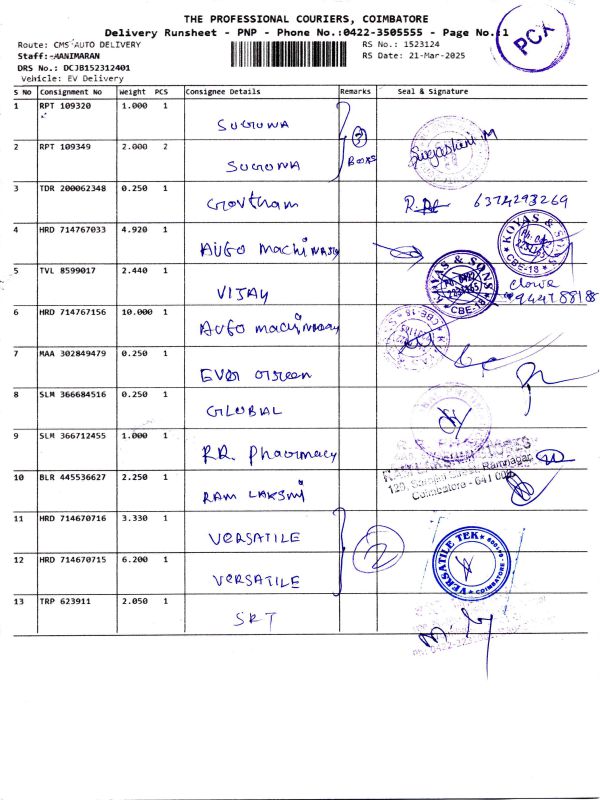 THE PROFESSIONAL COURIERS, COIMBATORE
Delivery Runsheet - PNP - Phone No.:0422-3505555 - Page No.:1
PCX
Route: CMS AUTO DELIVERY
RS No.: 1523124
Staff: MANIMARAN
RS Date: 21-Mar-2025
DRS No.: DCJB152312401
Vehicle: EV Delivery
S No Consignment No Weight PCS Consignee Details Remarks Seal & Signature
1 RPT 109320 1.000 1
SUGUNA
2 RPT 109349 2.000 2
SUGUNA
3
BOOKS
3 TDR 200062348 0.250 1
Govtham 6374293269
4 HRD 714767033 4.920 1
AUTO MachiNARY
KOVAS & SONS
CBE-18
5 TVL 8599017 2.440 1
VIJAY
KOVAS & SONS
CBE-18
6 HRD 714767156 10.000 1
AUTO machiNARAY
7 MAA 302849479 0.250 1
EVER GREEN
8 SLM 366684516 0.250 1
GLOBAL
9 SLM 366712455 1.000 1
R.R. Pharmacy
10 BLR 445536627 2.250 1
RAM LAKSMI
Coimbatore - 641
11 HRD 714670716 3.330 1
VERSATILE
2
12 HRD 714670715 6.200 1
VERSATILE
VERSATILE TEK
COIMBATORE
13 TRP 623911 2.050 1
SRT